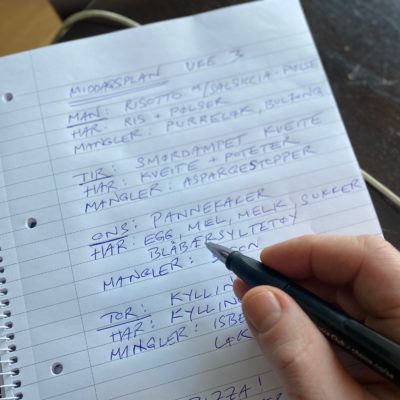 MIDDAGSPLAN UKE 3
MAN: RISOTTO M/SALSICCIA-PØLSE
HAR: RIS + PØLSER
MANGLER: PURRELØK, BULJONG
TIR: SMØRDAMPET KVEITE
HAR: KVEITE + POTETER
MANGLER: ASPARGESTOPPER
ONS: PANNEKAKER
HAR: EGG, MEL, MELK, SUKKER
BLÅBÆRSYLTETØY
MANGLER:
TOR: KYLLIN
HAR: KYLLIN
MANGLER: ISBE
LØK
PIZZA!